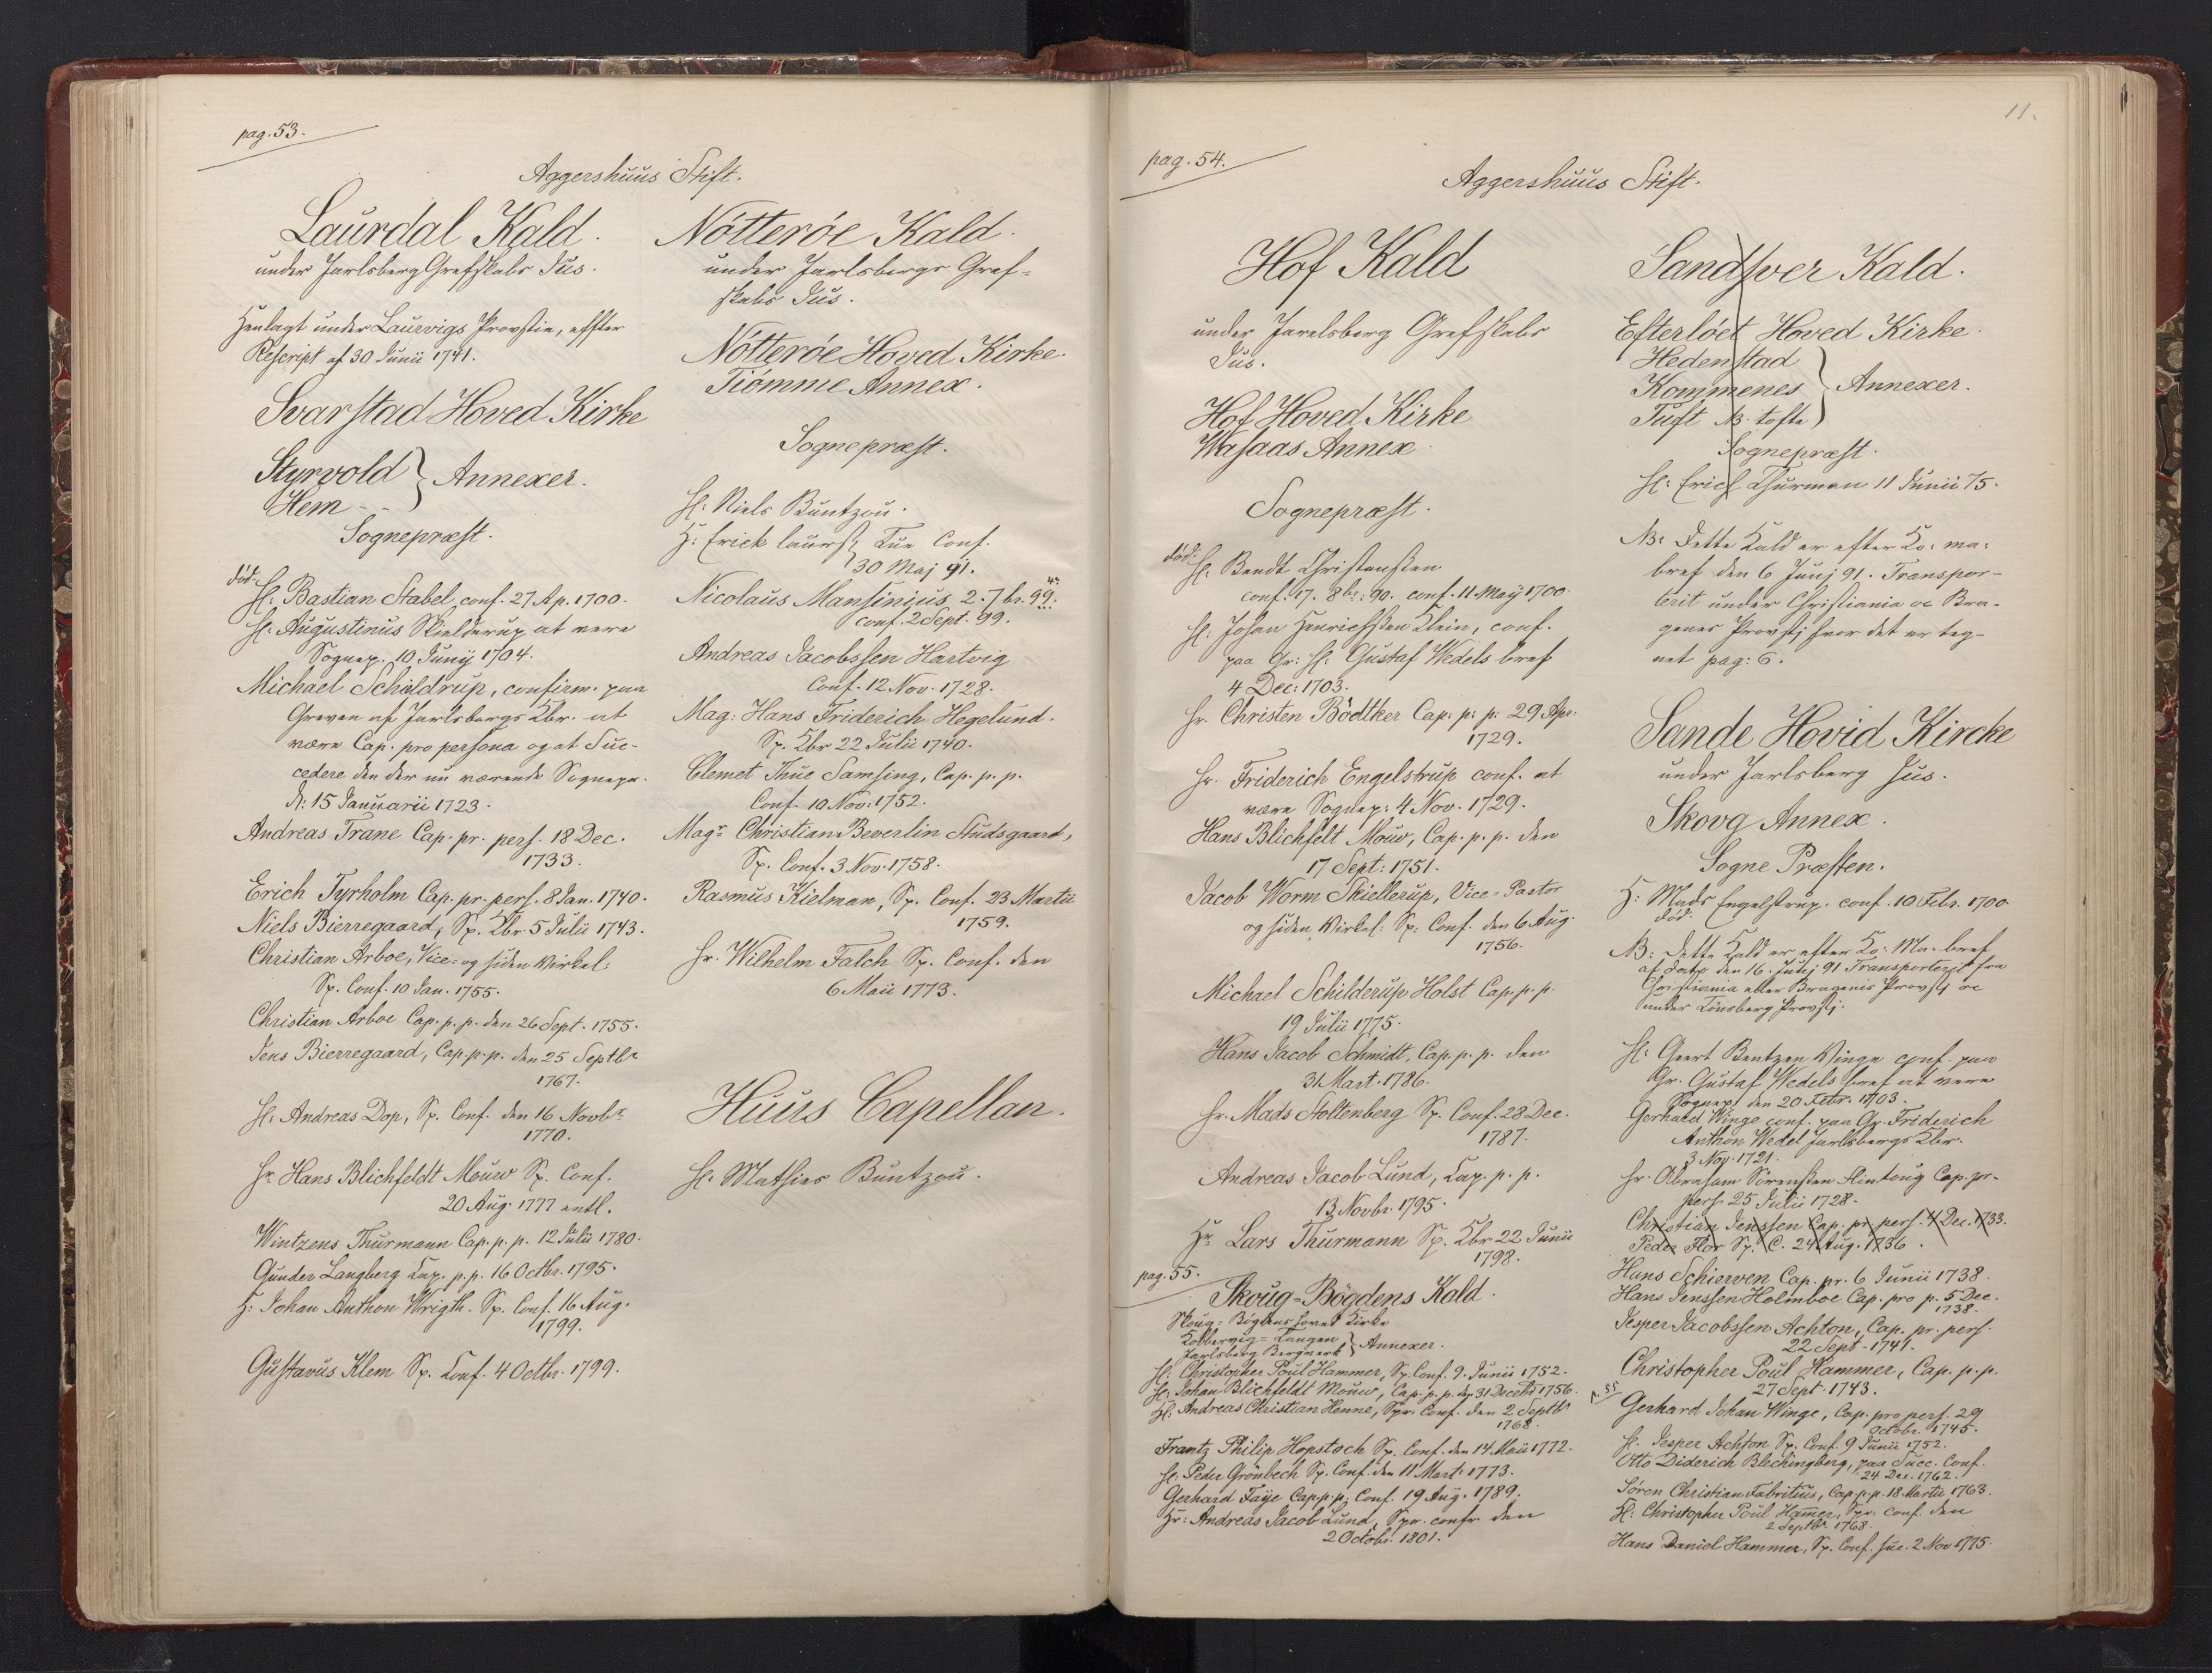 pag. 53.
Aggershuus Stift.
Laurdal Kald.
under Jarlsberg Grefskabs Jus.
Henlagt under Laurvigs Provstie, effter
Rescript af 30 Junii 1741.
Svarstad Hoved Kirke
Styrvold } Annexer.
Hem - -
Sognepræst.
død. H: Bastian Stabel conf. 27 Ap. 1700.
H: Augustinus Skielderup at vere
Sognep. 10 Junij 1704.
Michael Schildrup, confirm. paa
Greven af Jarlsbergs Kbr. at
være Cap. pro persona og at Suc-
cedere den der nu værende Sognepr.
d: 15 Januarii 1723.
Andreas Trane Cap. pr. pers. 18 Dec.
1733.
Erich Tyrholm Cap. pr. pers. 8 Jan. 1740.
Niels Bierregaard, Sp. Kbr 5 Julii 1743.
Christian Arboe, Vice- og siden Virkel:
Sp. Conf. 10 Jan. 1755.
Christian Arboe Cap. p. p. den 26 Sept. 1755.
Jens Bierregaard, Cap. p. p. den 25 Septbr
1767.
H: Andreas Dop, Sp. Conf. den 16 Novbr
1770.
Hr Hans Blichfeldt Mouw Sp. Conf.
20 Aug. 1777 entl.
Wintzens Thurmann Cap. p. p. 12 Julii 1780.
Gunder Langberg Cap. p. p. 16 Octbr. 1795.
H: Johan Anthon Wrigth. Sp. Conf. 16 Aug.
1799.
Gustavus Klem Sp. Conf. 4 Octbr. 1799.
Nötteröe Kald.
under Jarlsbergs Gref-
skabs Jus.
Nötteröe Hoved Kirke.
Tiömme Annex.
Sognepræst.
H: Niels Buntzou.
H: Erick Laurss Tue Conf.
30 Maj 91.
Nicolaus Mansinius 2. 7br. 99.
conf. 2 Sept. 99.
Andreas Jacobssen Hartvig
Conf. 12 Nov. 1728.
Mag: Hans Friderich Hegelund.
Sp. Kbr 22 Julii 1740.
Clemet Thue Samsing, Cap. p. p.
Conf. 10 Nov: 1752.
Magr Christian Beverlin Studsgaard,
Sp. Conf. 3 Nov. 1758.
Rasmus Kielman, Sp. Conf. 23 Martii
1759.
Hr. Wilhelm Falch Sp. Conf. den
6 Maii 1773.
Huus Capellan.
H. Mathias Buntzou.
11.
pag. 54.
Aggershuus Stift.
Hof Kald
under Jarelsberg Grefskabs
Jus.
Hof Hoved Kirke
Wasaas Annex.
Sognepræst.
død. H: Bendt Christensen
conf. 17. 8br: 90. conf. 11. May 1700.
H: Johan Henrichsen Klein, conf.
paa Gr: H: Gustaf Wedels bref
4 Dec: 1703.
Hr. Christen Bödtker Cap: p: p: 29 Apr.
1729.
Hr. Friderich Engelstrup conf. at
være Sognep: 4 Nov. 1729.
Hans Blichfelt Mouw, Cap. p. p. den
17 Sept: 1751.
Jacob Worm Skiellerup, Vice-Pastor
og siden Virkel: Sp: Conf. den 6 Aug.
1756.
Michael Schilderup Holst Cap. p. p.
19 Julii 1775.
Hans Jacob Schmidt, Cap. p. p. den
31 Mart. 1786.
Hr. Mads Stoltenberg Sp. Conf. 28 Dec.
1787.
Andreas Jacob Lund, Cap. p. p.
13 Novbr. 1795.
Hr Lars Thurmann Sp. Kbr 22 Junii
1798.
pag. 55.
Skoug-Bögdens Kald.
Skoug-Bögdens hoved Kirke
Kobbervig-Tangen } Annexer.
Jarlsberg Bergverk
H: Christopher Poul Hammer, Sp. Conf. 9. Junii 1752.
H: Johan Blichfeldt Mouw, Cap. p. p. den 31 Decebr 1756.
H: Andreas Christian Henne, Spr. Conf. den 2 Septbr
1768.
Frantz Philip Hopstoch Sp. Conf. den 14 Maii 1772.
H: Peder Grönbech Sp. Conf. den 11 Mart: 1773.
Gerhard Faÿe Cap. p. p. Conf. 19 Aug. 1789.
Hr: Andreas Jacob Lund, Spr. confr. den
2 Octobr. 1801.
Sandsver Kald.
Efterlöet Hoved Kirke.
Hedenstad
Kommenes } Annexer.
Tuft NB. tofte
Sognepræst.
H: Erich Thurman 11 Junii 75.
NB: Dette Kald er efter Ko: ma:
bref den 6 Junj 91. Transpor-
terit under Christiania oc Bra-
genes Provstj hvor det er teg-
net pag: 6.
Sande Hovid Kircke
under Jarlsberg Jus.
Skovg Annex.
Sogne Præsten.
H: Mads Engelstrup. conf. 10 Febr. 1700.
død.
NB: Dette Kald er efter Ko: Ma: bref
af dato den 16. Julij 91 Transporterit fra
Christiania eller Bragenes Provstj oc
under Tönsberg Provstj.
H: Geert Bentzen Winge conf. paa
Gr. Gustaf Wedels bref at vere
Sognepr den 20 Febr. 1703.
Gerhard Winge conf. paa Gr. Friderich
Anthon Wedel Jarlsbergs Kbr.
3 Nov. 1721.
Hr. Abraham Sörensen Stintoug Cap. pr.
pers. 25 Julii 1728.
Christian Jenssen Cap. pr. pers. 4 Dec. 1733.
Peder Flor Sp. C. 24 Aug. 1736.
Hans Schierven Cap. pr. 6 Junii 1738.
Hans Jenssen Holmboe Cap. pro p. 5 Dec.
1738.
Jesper Jacobssen Achton, Cap. pr. pers.
22 Sept. 1741.
Christopher Poul Hammer, Cap. p. p.
27 Sept. 1743.
p. 55 Gerhard Johan Winge, Cap. pro pers. 29
Octobr. 1745.
H. Jesper Achton Sp. Conf. 9 Junii 1752.
Otto Diderich Blechingberg, paa Succ. Conf.
24 Dec. 1762.
Sören Christian Fabritius, Cap. p. p. 18 Martii 1763.
H: Christopher Poul Hamer, Spr: Conf. den
2 Septbr. 1768.
Hans Daniel Hammer, Sp. Conf. suc. 2 Nov 1775.